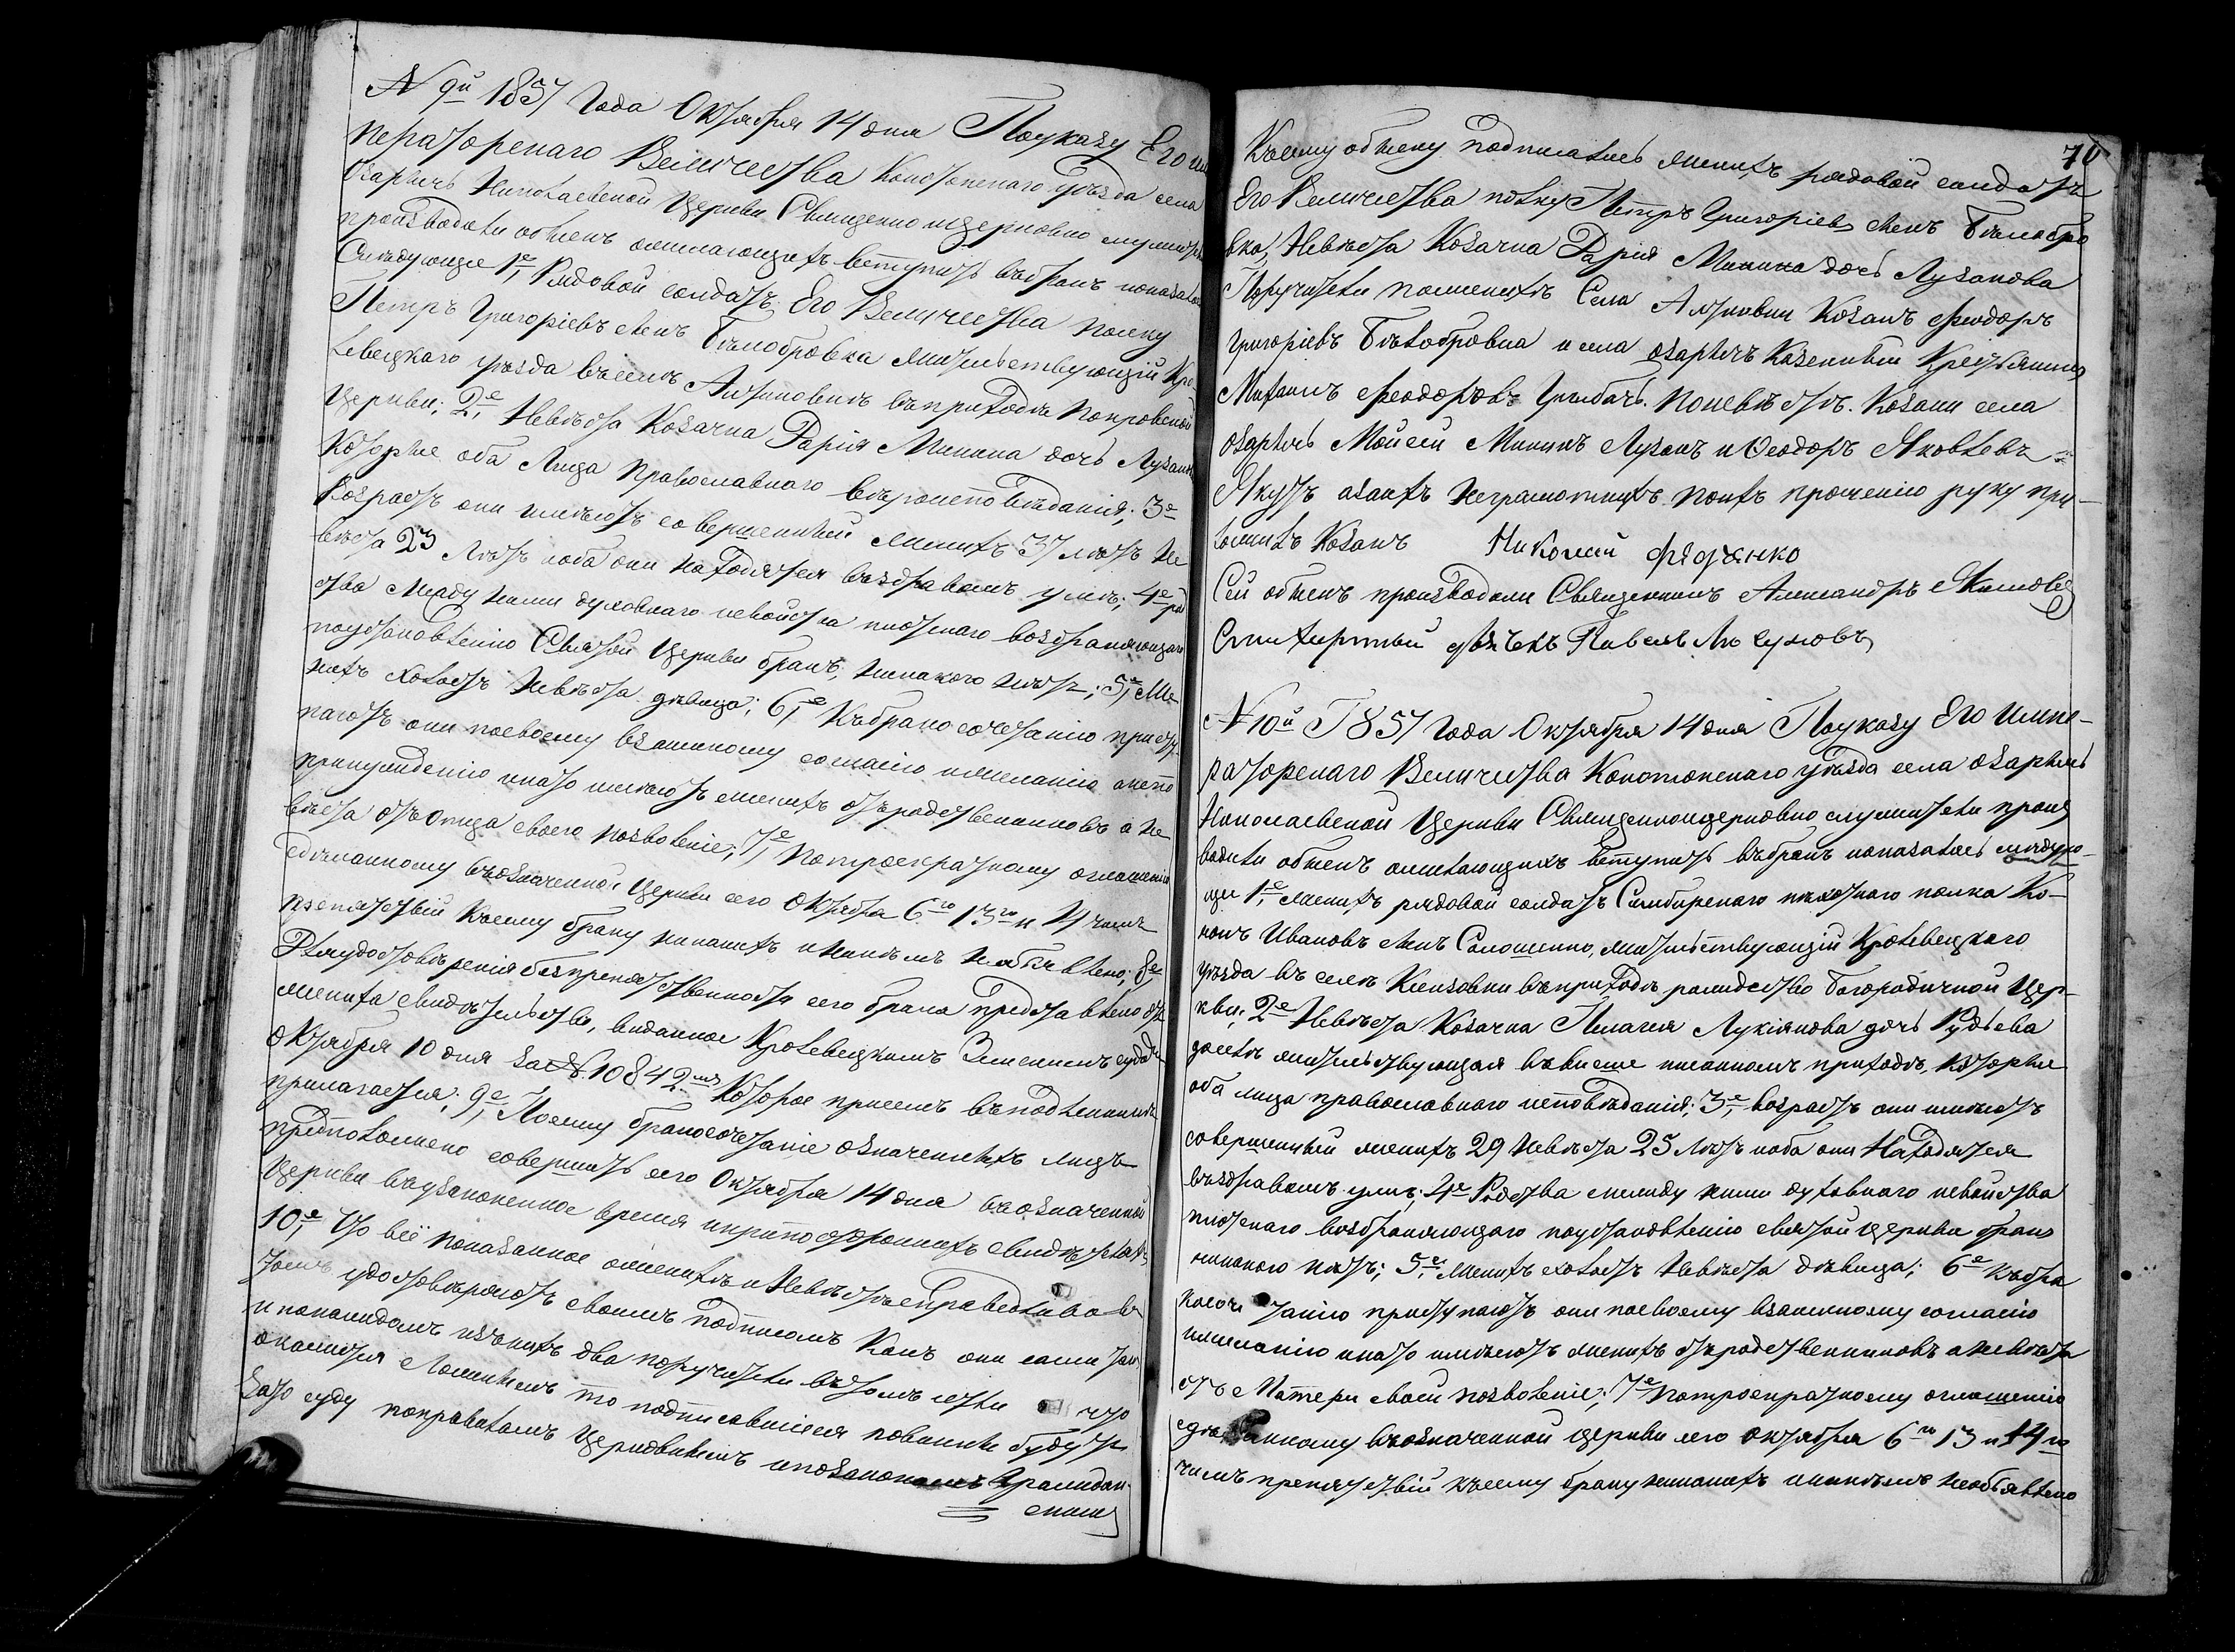 № 9й 1857 Года Октября 14 дня По указу Его им
ператорскаго Величества Конотопскаго уѣзда села
Озаричь Николаевской Церкви Священно и церковно служители
производили обыскъ о желающихъ вступить въ бракъ и оказалось
Слѣдующее 1е, Рядовой солдатъ Его Величества полку
Петръ Григоріевъ сынъ Бѣлобровка жительствующій Кро-
левецкаго уѣзда въ селѣ Алтиновкѣ въ приходѣ Покровской
Церкви; 2е, Невѣста Козачка Дарія Минина дочь Лузанова
Которые оба Лица Православнаго вѣроисповѣданія; 3е
Возрастъ они имѣютъ совершенный женихъ 37 лѣтъ не
вѣста 23 Лѣтъ и оба они находятся въ здравомъ умѣ; 4е род
ства между ними духовнаго и свойства плотскаго возбраняющаго
по установленію Святой Церкви бракъ, никакого нѣтъ; 5е, Же-
нихъ холостъ Невѣста дѣвица; 6е, Къ бракосочетанію присту-
паютъ они по своему взаимному согласію и желанію а не по
принужденію и на то имѣютъ женихъ отъ родственниковъ а не
вѣста отъ Отца своего позволеніе; 7е, По троекратному оглашенію
сдѣланному въ означенной Церкви сего Октября 6го 13го и 14 числъ
препятствій къ сему браку никакихъ и никѣмъ не объявлено; 8е
Для удостовѣренія безпрепятственности сего брака Представлено отъ
жениха свидѣтельство, виданное Кролевецкимъ Земскимъ судомъ
Октября 10 дня за № 10842мъ Которое при семъ въ подленникѣ
прилагается; 9е, По сему бракосочетаніе означенныхъ лицъ
предположено совершить сего Октября 14 дня въ означенной
Церкви въ узаконенное время и при постороннихъ свидѣтеляхъ
10е, Что всё показанное о женихѣ и Невѣстѣ справедливо въ
томъ удостовѣряютъ своимъ подписомъ Какъ они сами такъ
и по каждомъ изъ нихъ два поручителя въ томъ если что
окажется Ложнымъ то подписавшіеся повинны будутъ
зато суду по правиламъ Церковнымъ и по законамъ Граждан-
скимъ
70
Къ сему обыску подписались женихъ рядовой солдатъ
Его Величества полку Петръ Григоріевъ сынъ Бѣлобро
вка, Невѣста Козачка Дарія Минина дочь Лузанова
Поручители по женихѣ Села Алтиновки Козакъ Феодоръ
Григоріевъ Бѣлобровка и села Озаричь Казенный Крестьянинъ
Михаилъ Феодоровъ Грибачъ. по невѣстѣ. Козаки села
Озаричь Мойсей Мининъ Лузанъ и Феодоръ Яковлевъ
Якутъ а за нихъ неграмотныхъ по ихъ прошенію руку при-
ложилъ Козакъ Николай Фядченко
Сей обыскъ производили Священникъ Александръ Якимовъ
Стихарный дьячекъ Павелъ
№ 10й 1857 Года Октября 14 дня По указу Его Импе-
раторскаго Величества Конотопскаго уѣзда села Озаричь
Николаевской Церкви Священно и церковно служители произ
водили обыскъ о желающихъ вступить въ бракъ и оказалось слѣдую-
щее 1е, Женихъ рядовой солдатъ Симбирскаго пѣхотнаго полка Ко-
нонъ Ивановъ сынъ Соломенно, жительствующій Кролевецкаго
уѣзда въ селѣ Клишовки въ приходѣ рождество Богородичной Цер-
кви; 2е Невѣста Козачка Пелагія Лукіянова дочь Рудьева
дѣетъ жительствующая въ више писанномъ приходѣ, Которые
оба лица православнаго исповѣданія; 3е, возрастъ они имѣютъ
совершенный женихъ 29 Невѣста 25 Лѣтъ и оба они Находятся
въ здравомъ умѣ; 4е Родства между ними духовнаго и свойства
плотскаго возбраняющаго по установленію святой Церкви бракъ
никакого нѣтъ; 5е, Женихъ холостъ Невѣста дѣвица; 6е къ бра
косоче танію приступаютъ они по своему взаимному согласію
и желанію и на то имѣютъ женихъ отъ родственниковъ а невѣста
отъ Матери своей позволеніе; 7е По троекратному оглашенію
сдѣланному въ означенной Церкви сего октября 6го 13 и 14го
числъ препятствій къ сему браку никакихъ и никѣмъ необъявлено